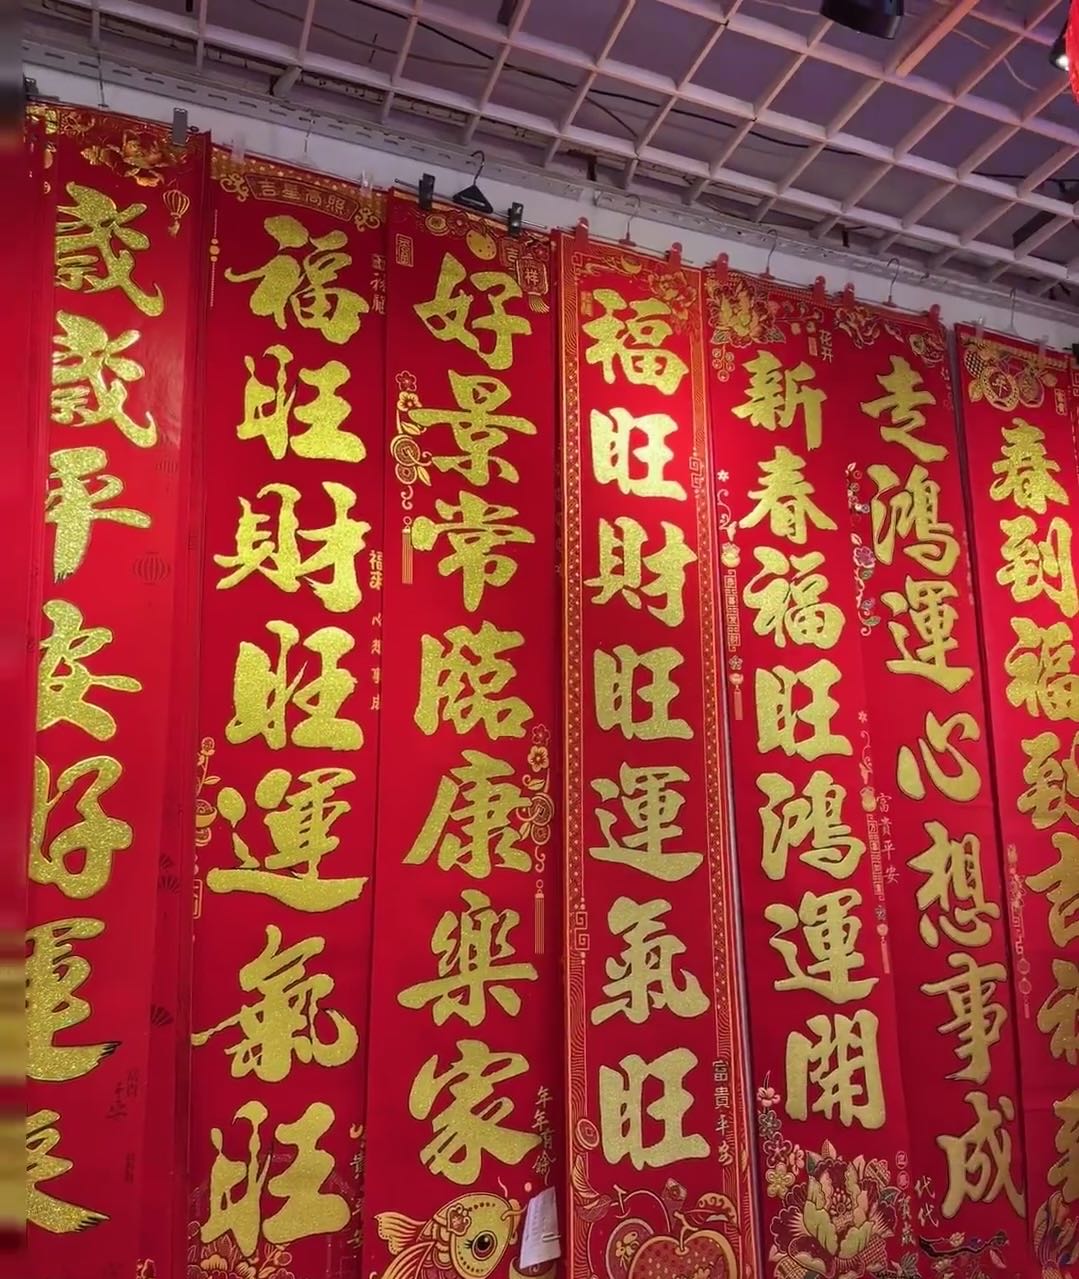 歲歲平安好運來
吉星高照
福旺財旺運氣旺
福來
心想事成
吉祥
好景常臨康樂家
年年有餘
福旺財旺運氣旺
富貴平安
花開
新春福旺鴻運開
富貴平安
走鴻運心想事成
代代
春到福到吉祥到